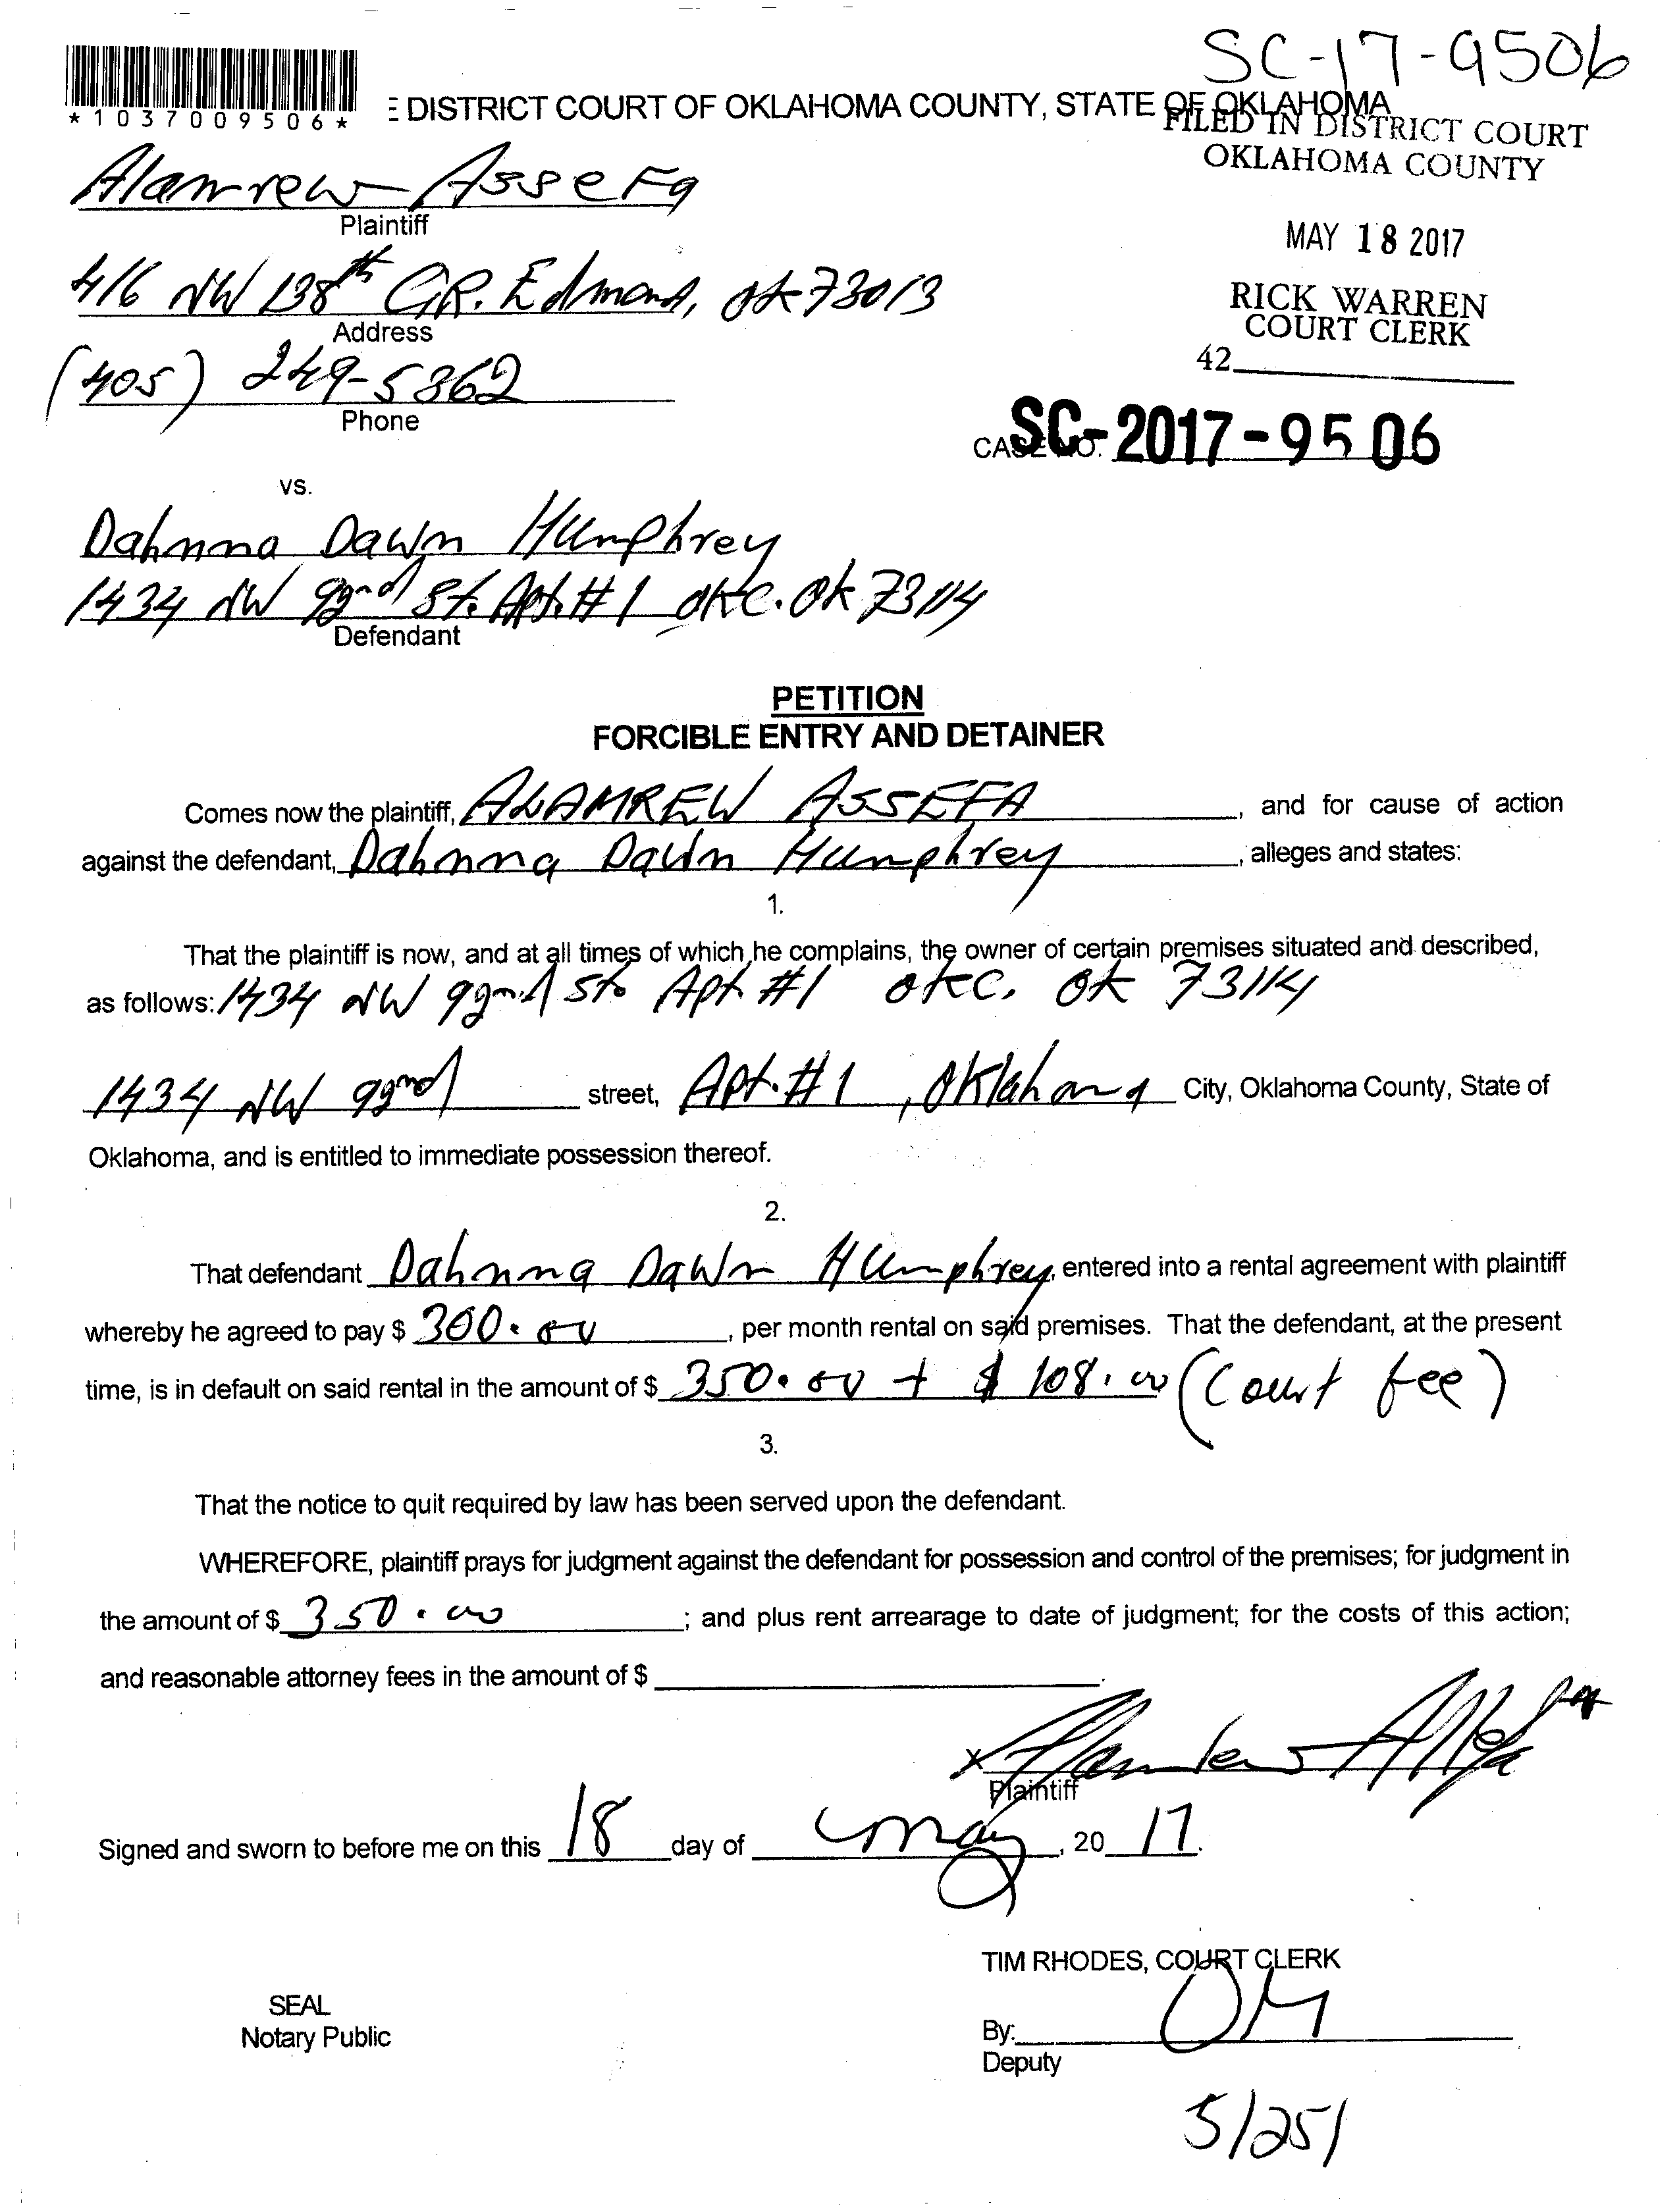 SC-17-9506
*1037009506*
E DISTRICT COURT OF OKLAHOMA COUNTY, STATE OF OKLAHOMA
FILED IN DISTRICT COURT
OKLAHOMA COUNTY
MAY 18 2017
RICK WARREN
COURT CLERK
42
Alamrew Assefa
Plaintiff
416 NW 138th CIR. Edmond, ok 73013
Address
(405) 249-5862
Phone
CASE NO. SC-2017-9506
vs.
Dahnna Dawn Humphrey
1434 NW 92nd St. Apt. #1 okc. Ok 73114
Defendant
PETITION
FORCIBLE ENTRY AND DETAINER
Comes now the plaintiff, ALAMREW ASSEFA, and for cause of action
against the defendant, Dahnna Dawn Humphrey, alleges and states:
1.
That the plaintiff is now, and at all times of which he complains, the owner of certain premises situated and described,
as follows: 1434 NW 92nd St. Apt. #1 okc. Ok 73114
1434 NW 92nd street, Apt. #1, Oklahoma City, Oklahoma County, State of
Oklahoma, and is entitled to immediate possession thereof.
2.
That defendant Dahnna Dawn Humphrey, entered into a rental agreement with plaintiff
whereby he agreed to pay $ 300.00, per month rental on said premises. That the defendant, at the present
time, is in default on said rental in the amount of $ 350.00 + $ 108.00 (Court fee)
3.
That the notice to quit required by law has been served upon the defendant.
WHEREFORE, plaintiff prays for judgment against the defendant for possession and control of the premises; for judgment in
the amount of $ 350.00; and plus rent arrearage to date of judgment; for the costs of this action;
and reasonable attorney fees in the amount of $
X Alamrew Assefa
Plaintiff
Signed and sworn to before me on this 18 day of may, 20 17.
TIM RHODES, COURT CLERK
SEAL
Notary Public
By: OM
Deputy
5/251